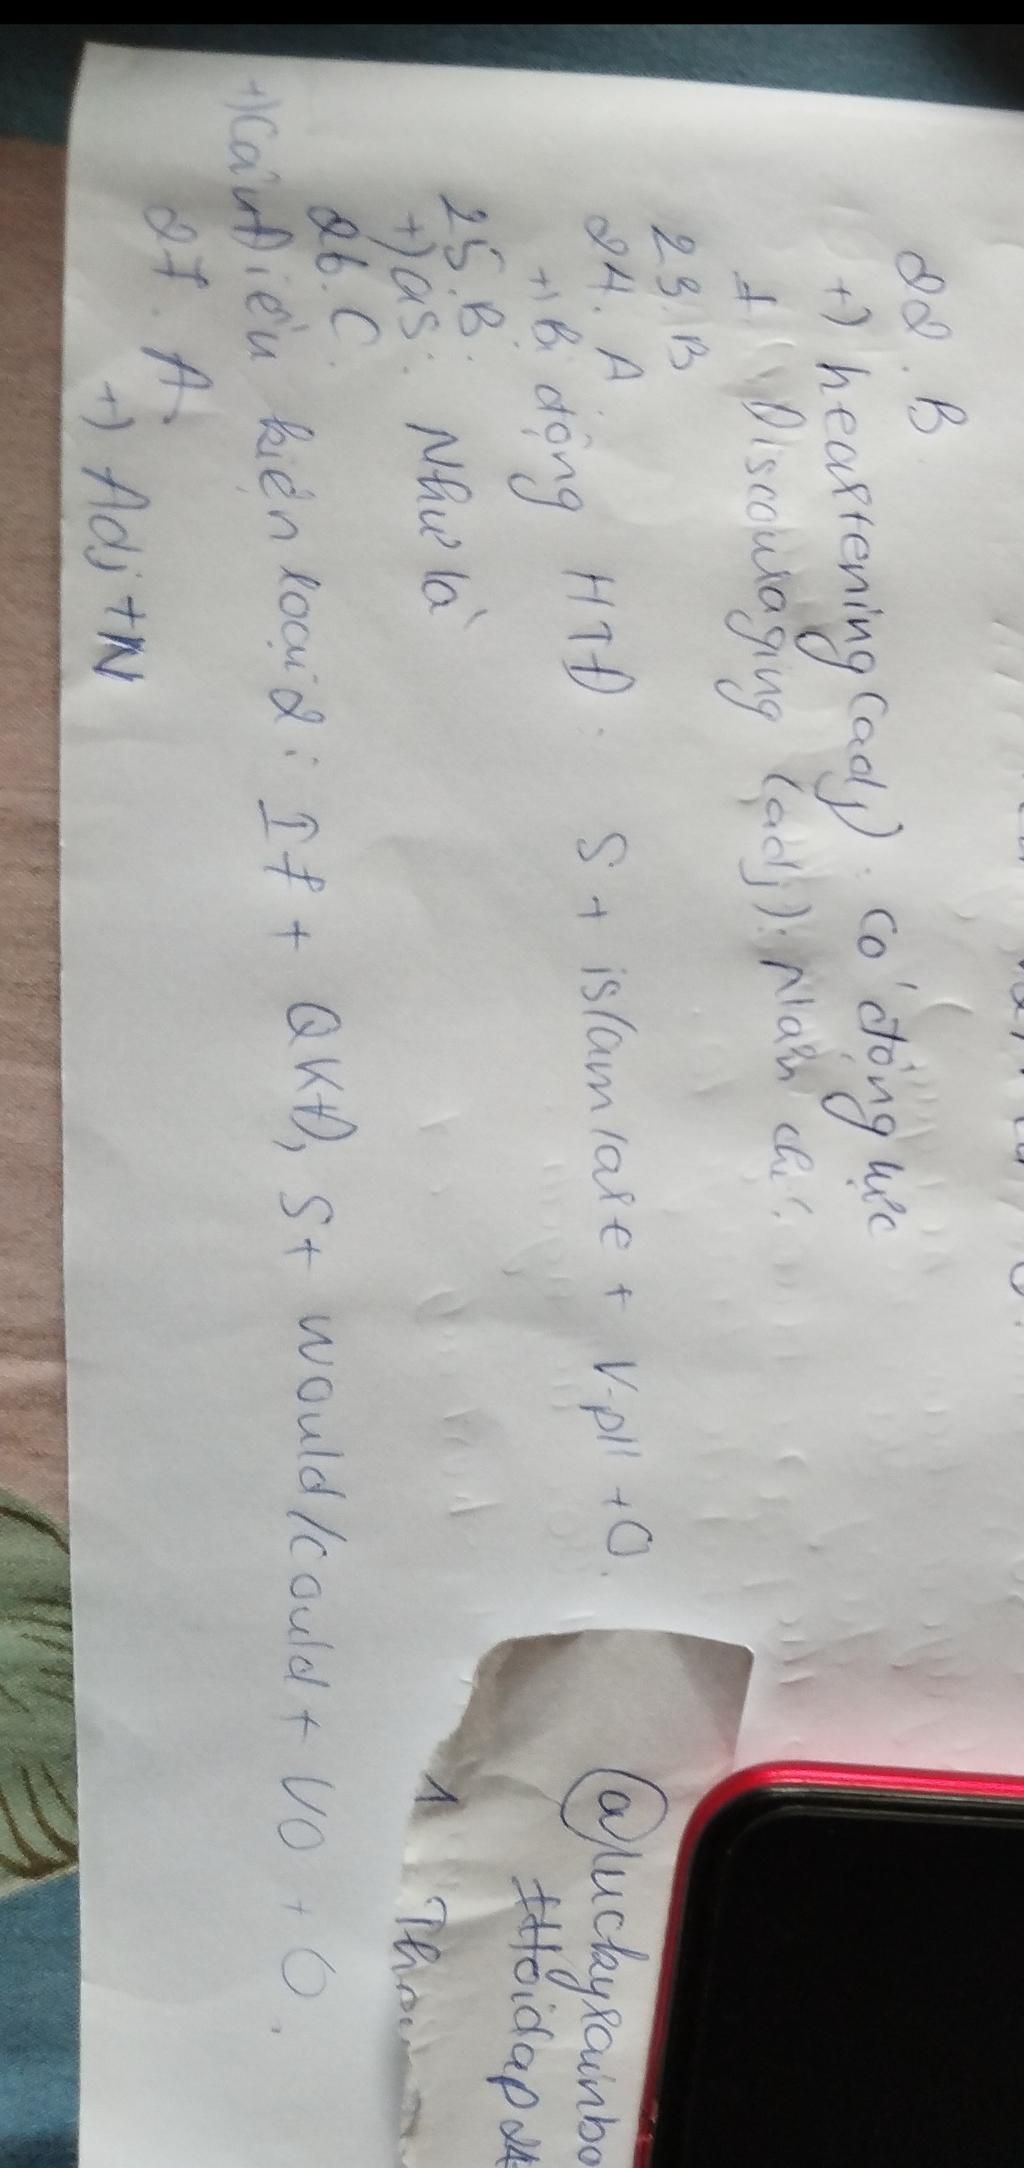 22. B
+) heartening (adj): có động lực
≠ Discouraging (adj): Nản chí.
23. B
24. A
+) Bị động HTĐ: S + is/am/are + V-pII + O.
25. B.
+) as: Như là
26. C.
+) Câu Điều kiện loại 2: If + QKĐ, S + would/could + V0 + O.
27. A.
+) Adj + N
@luckyrainbo
#Hoidap24
1